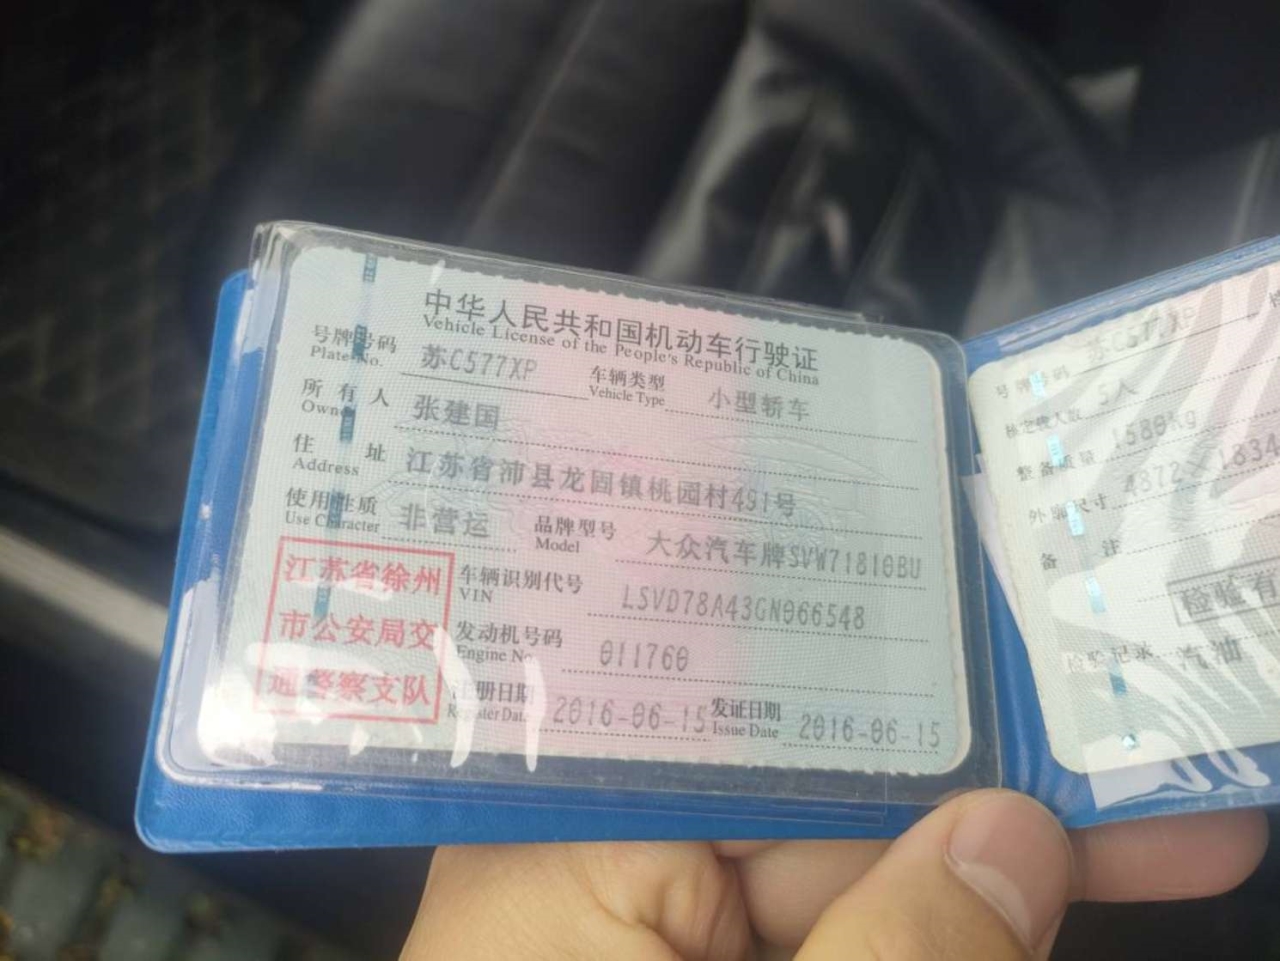 中华人民共和国机动车行驶证
Vehicle License of the People's Republic of China
号牌号码 苏C577XP 车辆类型 小型轿车
Plate No. Vehicle Type
所有人 张建国
Owner
住址 江苏省沛县龙固镇桃园村491号
Address
使用性质 非营运 品牌型号 大众汽车牌SVW71810BU
Use Character Model
江苏省徐州
市公安局交
通警察支队
车辆识别代号 LSVD78A43GN066548
VIN
发动机号码 011760
Engine No.
注册日期 2016-06-15 发证日期 2016-06-15
Register Date Issue Date
号牌号码 苏C577XP
核定载人数 5人
整备质量 1580kg
外廓尺寸 4872 1834
备注
检验有
检验记录 汽油